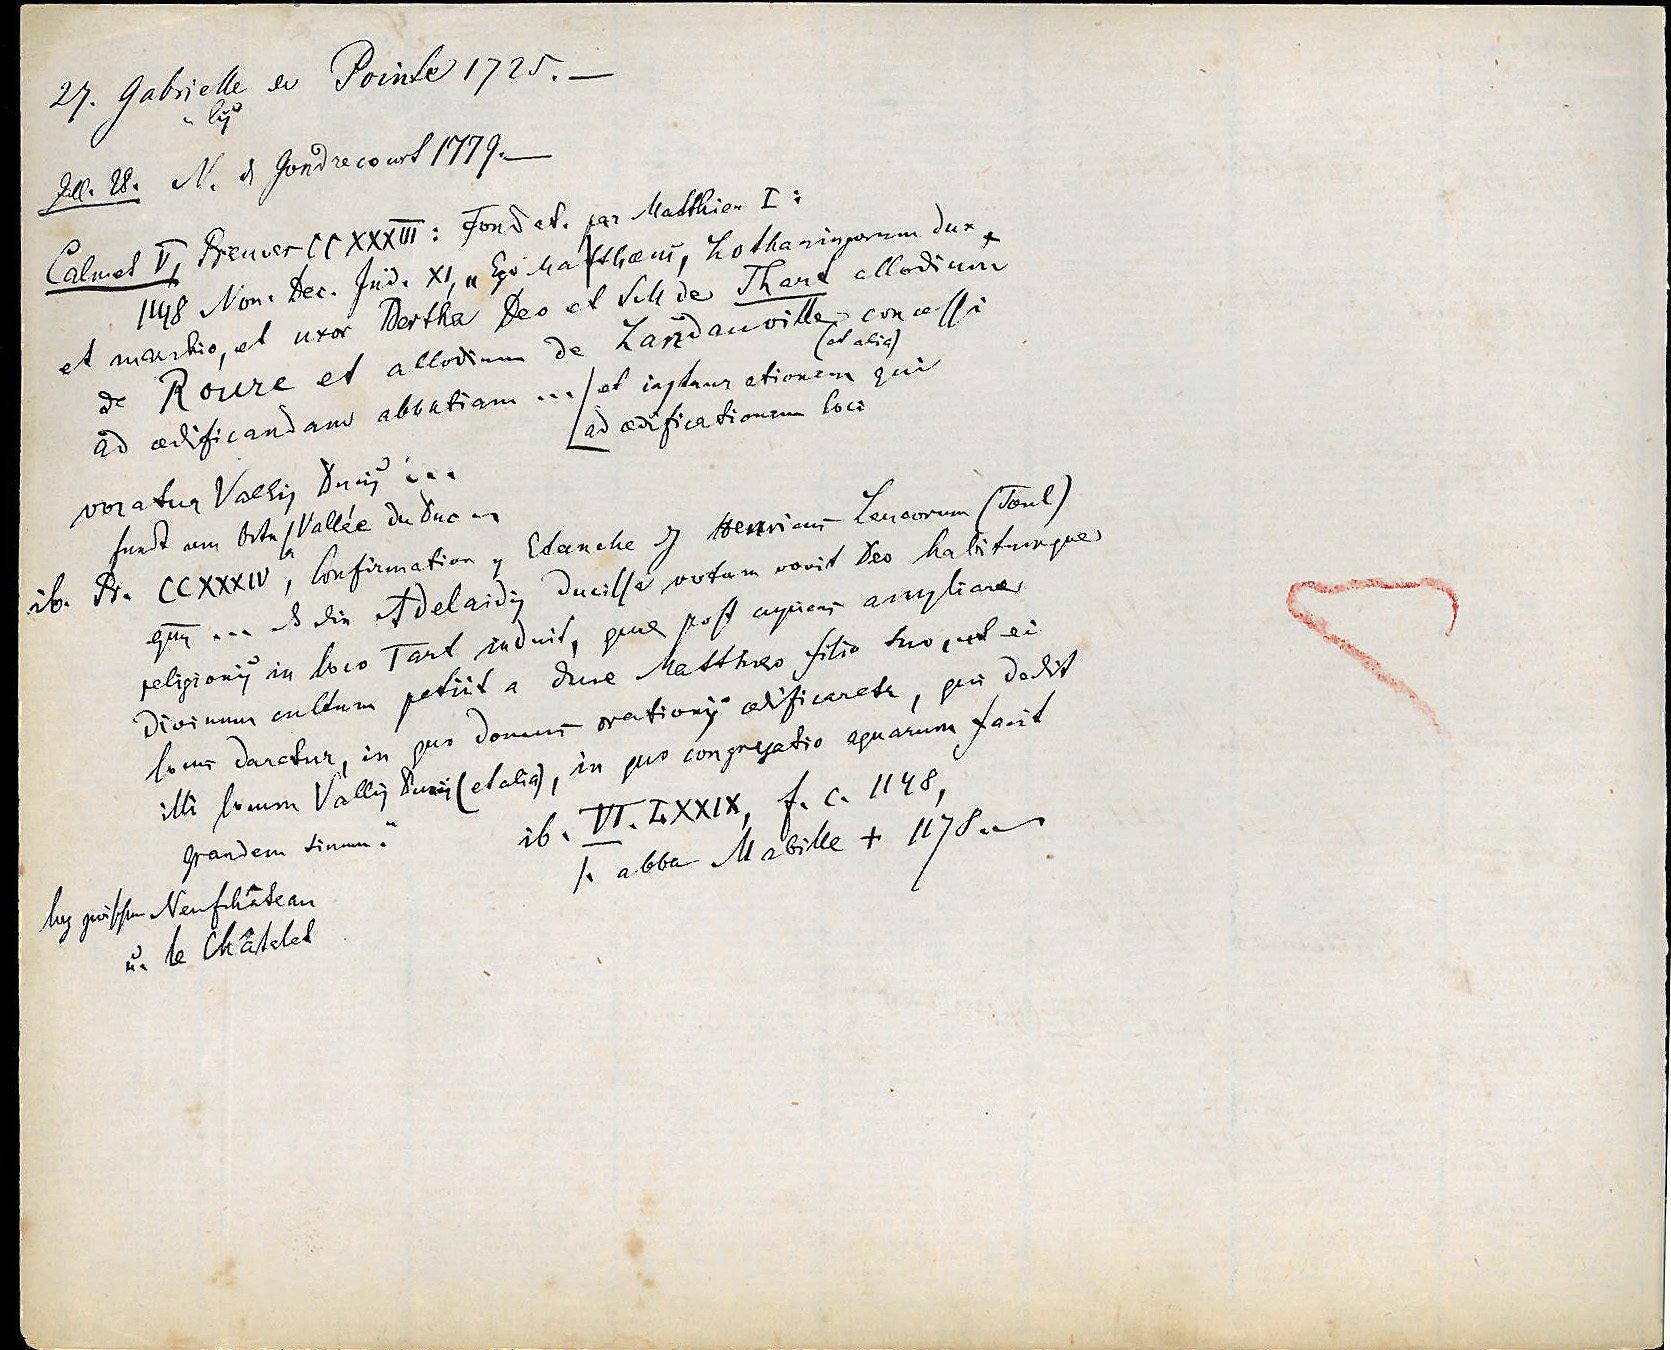 27. Gabrielle de Pointe 1725. —
Gall. 28. N. de Gondrecourt 1779. —
Calmet V, Preuves CCXXXIII: Fondat. par Matthieu I:
1148 Non. Dec. Ind. XI, „Ego Matthaeus, Lotharingorum dux
et marchio, et uxor Bertha Deo et S M de Thart allodium
de Roure et allodium de Landauville concessi
(et alia)
ad aedificandam abbatiam ... et
qui
ad aedificationem loci
vocatur Vallis Ducis ...
Vallée du Duc
ib. Pr. CCXXXIV, Confirmation Etanche Henricus Leucorum (Toul)
eps ... Adelaidis ducissa votum vovit Deo habitumque
religionis in loco Tart induit, quae post cupiens ampliare
divinum cultum petiit a duce Mattheo filio suo, ut ei
locus daretur, in quo domus orationis aedificaretr, qui dedit
illi locum Vallis Ducis (et alia), in quo congregatio aquarum facit
grandem sinum."
ib. VI. LXXIX, f. c. 1148,
1. abba Mabille + 1178. —
zwischen Neufchâteau
u. le Châtelet